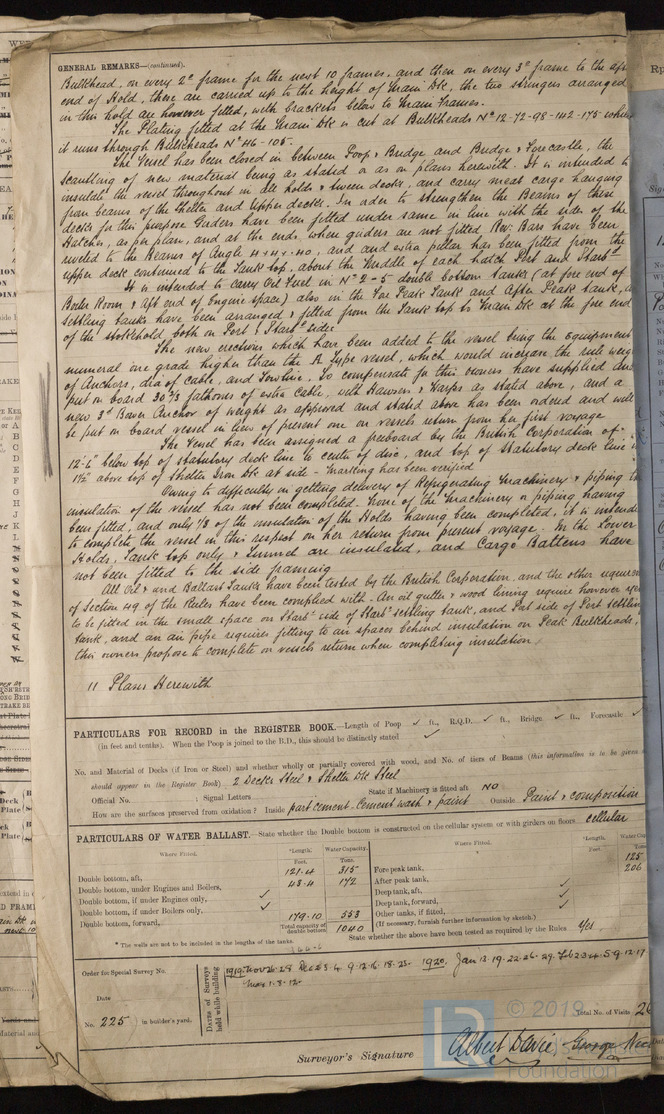 GENERAL REMARKS—(continued).
Bulkhead, on every 2d frame for the next 10 frames, and then on every 3d frame to the aft
end of Hold, these are carried up to the height of Main Dk, the two stringers arranged
in this hold are however fitted, with brackets below to Main Frames.
The Plating fitted at the Main Dk is cut at Bulkheads No 12-72-98-142-175 while
it runs through Bulkheads No 46-105.
The Vessel has been closed in between Poop & Bridge and Bridge & Forecastle, the
scantling of new material being as stated or as on plans herewith. It is intended to
insulate the vessel throughout in all holds & tween decks, and carry meat cargo hanging
from beams of the Shelter and Upper decks. In order to strengthen the Beams of these
decks for this purpose Girders have been fitted under same in line with the sides of the
Hatches, as per plan, and at the ends where girders are not fitted Rev. Bars have been
riveted to the Beams of Angle 4 x 4 x .40, and and extra pillar has been fitted from the
upper deck continued to the Tank top, about the Middle of each hatch Port and Starbd
It is intended to carry Oil Fuel in No 2-5 double bottom tanks (at fore end of
Boiler Room & Aft end of Engine space) also in the Fore Peak Tank and After Peak tank,
settling tanks have been arranged & fitted from the Tank top to Main Dk at the fore end
of the stokehold, both on Port & Starbd side.
The new erections which have been added to the vessel bring the Equipment
numeral one grade higher than the A type vessel, which would increase the rule weight
of Anchors, dia of cable, and Towline. To compensate for this owners have supplied and
put on board 30 2/3 fathoms of extra cable, with Hawsers & Warps as stated above, and a
new 3d Bower Anchor of weight as approved and stated above has been ordered and will
be put on board vessel in lieu of present one on vessels return from her first voyage
The Vessel has been assigned a freeboard by the British Corporation of-
12'-6" below top of statutory deck line to centre of disc, and top of statutory deck line
1½" above top of Shelter Iron Dk at side - Marking has been verified
Owing to difficulty in getting delivery of Refrigerating Machinery & piping the
insulation of the vessel has not been completed - none of the Machinery or piping having
been fitted, and only 1/3 of the insulation of the Holds having been completed, it is intended
to complete the vessel in this respect on her return from present voyage. In the Lower
Holds, Tank top only & Tunnel are insulated, and Cargo Battens have
not been fitted to the side framing
All Oil & and Ballast Tanks have been tested by the British Corporation, and the other
of Section 49 of the Rules have been complied with - An oil gutter & wood lining require however
to be fitted in the small space on Starbd side of Starbd settling tank, and Port side of Port settling
tank, and an air pipe requires fitting to air spaces behind insulation on Peak Bulkheads,
this owners propose to complete on vessels return when completing insulation
11 Plans Herewith
PARTICULARS FOR RECORD in the REGISTER BOOK.—Length of Poop ✓ ft., R.Q.D. ✓ ft., Bridge ✓ ft., Forecastle ✓
(in feet and tenths). When the Poop is joined to the B.D., this should be distinctly stated ✓
No. and Material of Decks (if Iron or Steel) and whether wholly or partially covered with wood, and No. of tiers of Beams (this information is to be given
should appear in the Register Book) 2 Decks Steel & Shelter Dk Steel
Official No. ; Signal Letters State if Machinery is fitted aft NO
How are the surfaces preserved from oxidation? Inside part cement - Cement wash & paint Outside Paint & composition
PARTICULARS OF WATER BALLAST.—State whether the Double bottom is constructed on the cellular system or with girders on floors cellular
Where Fitted. *Length. Water Capacity. Where Fitted. *Length. Water Cap
Feet. Tons. Feet. Tons.
Double bottom, aft, 121.4 315 Fore peak tank, 125
Double bottom, under Engines and Boilers, 43.4 172 After peak tank, 206
Double bottom, if under Engines only, ✓ Deep tank, aft, ✓
Double bottom, if under Boilers only, ✓ Deep tank, forward, ✓
Double bottom, forward, 179.10 553 Other tanks, if fitted, ✓
Total capacity of double bottom 1040 (If necessary, furnish further information by sketch.)
* The wells are not to be included in the lengths of the tanks. State whether the above have been tested as required by the Rules Yes
Order for Special Survey No.
Date
No. 225 in builder's yard.
Dates of Surveys held while building
1919. Nov 26. 28 Dec 2 3 4. 9. 12. 16. 18. 23. 1920. Jan 13. 19. 22. 26. 29. Feb 2 3. 4. 5. 9. 12. 17
Mar 1. 8. 12.
Total No. of Visits 26
Surveyor's Signature Albert Davie, George
LR © 2019
Foundation